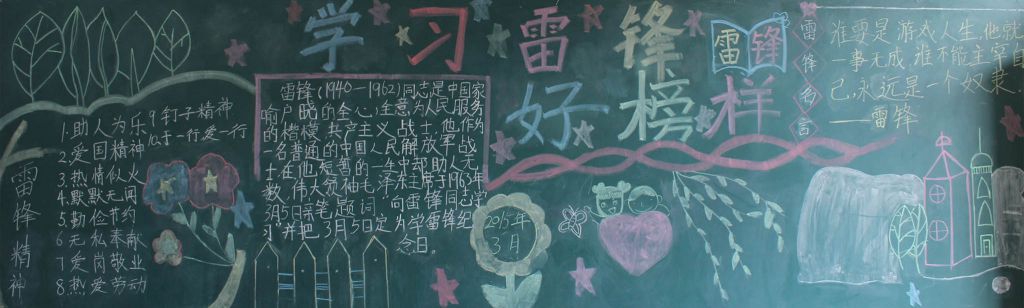 学习雷锋
好榜样
雷锋
雷锋名言
谁要是游戏人生,他就
一事无成,谁不能主宰自
己,永远是一个奴隶.
——雷锋
雷锋精神
1.助人为乐
2.爱国精神
3.热情似火
4.默默无闻
5.勤俭节约
6.无私奉献
7.爱岗敬业
8.热爱劳动
9.钉子精神
10.干一行爱一行
雷锋(1940—1962)同志是中国家
喻户晓的全心全意为人民服务
的楷模,共产主义战士,他作为
一名普通的中国人民解放军战
士,在他短暂的一生中却助人无
数。伟大领袖毛泽东主席于1963年
3月5日亲笔题词"向雷锋同志学
习"并把3月5日定为学雷锋纪
念日。
2015年
3月